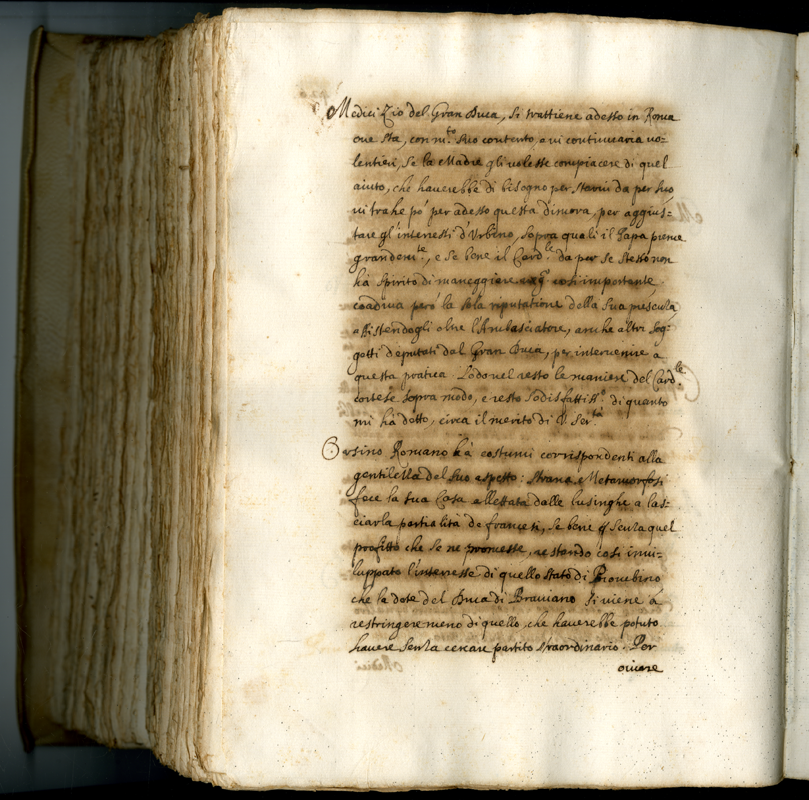 Medici Zio del Gran Duca, si trattiene adesso in Roma
oue sta, con m.to suo contento, e ui continuaria uo=
lentieri, se la Madre gli uolesse compiacere di quel
aiuto, che hauerebbe di bisogno per starui da per suo
ui trahe pò per adesso questa dimora, per aggius=
tare gl'interessi d'Vrbino, sopra quali il Papa preme
grandem.te, e se bene il Card.le da per se stesso non
ha spirito di maneggiare cosi importante
coadiua però la sola riputatione della sua
assistendogli oltre l'Ambasciatore, anche altri sog=
getti deputati dal Gran Duca, per interuenire a
questa pratica. Lodo nel resto le maniere del Card.le
cortese sopra modo, e resto sodisfattiss.o di quanto
mi ha detto, circa il merito di V. Ser.tà
Orsino Romano hà costumi corrispondenti alla
gentilezza del suo aspetto: strana Metamorfosi
fece la sua Casa allettata dalle lusinghe a las=
ciar la partialità de francesi, se bene senza quel
profitto che se ne promesse, restando cosi inui=
luppato l'interesse di quello stato di Piombino
che la dote del Duca di Braciano si uiene à
restringere meno di quello, che hauerebbe potuto
hauere senza cercare partito straordinario. Por